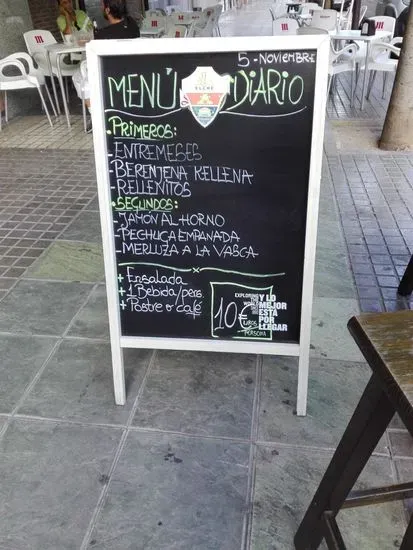 5-NOVIEMBRE
MENÚ DIARIO
ELCHE
• PRIMEROS:
-ENTREMESES
-BERENJENA RELLENA
-RELLENITOS
• SEGUNDOS:
-JAMÓN AL HORNO
-PECHUGA EMPANADA
-MERLUZA A LA VASCA
+ Ensalada
+ 1 Bebida/pers.
+ Postre o café
10€
PERSONA
Y LO
MEJOR
ESTÁ
POR
LLEGAR